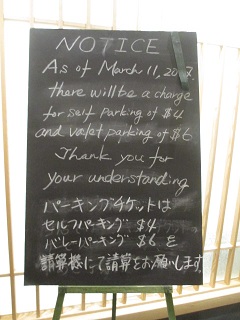 NOTICE
As of March 11, 2017,
there will be a charge
for self parking of $4
and valet parking of $6
Thank you for
your understanding
パーキングチケットは
セルフパーキング $4
バレーパーキング $6 を
請算機にて請算をお願いします